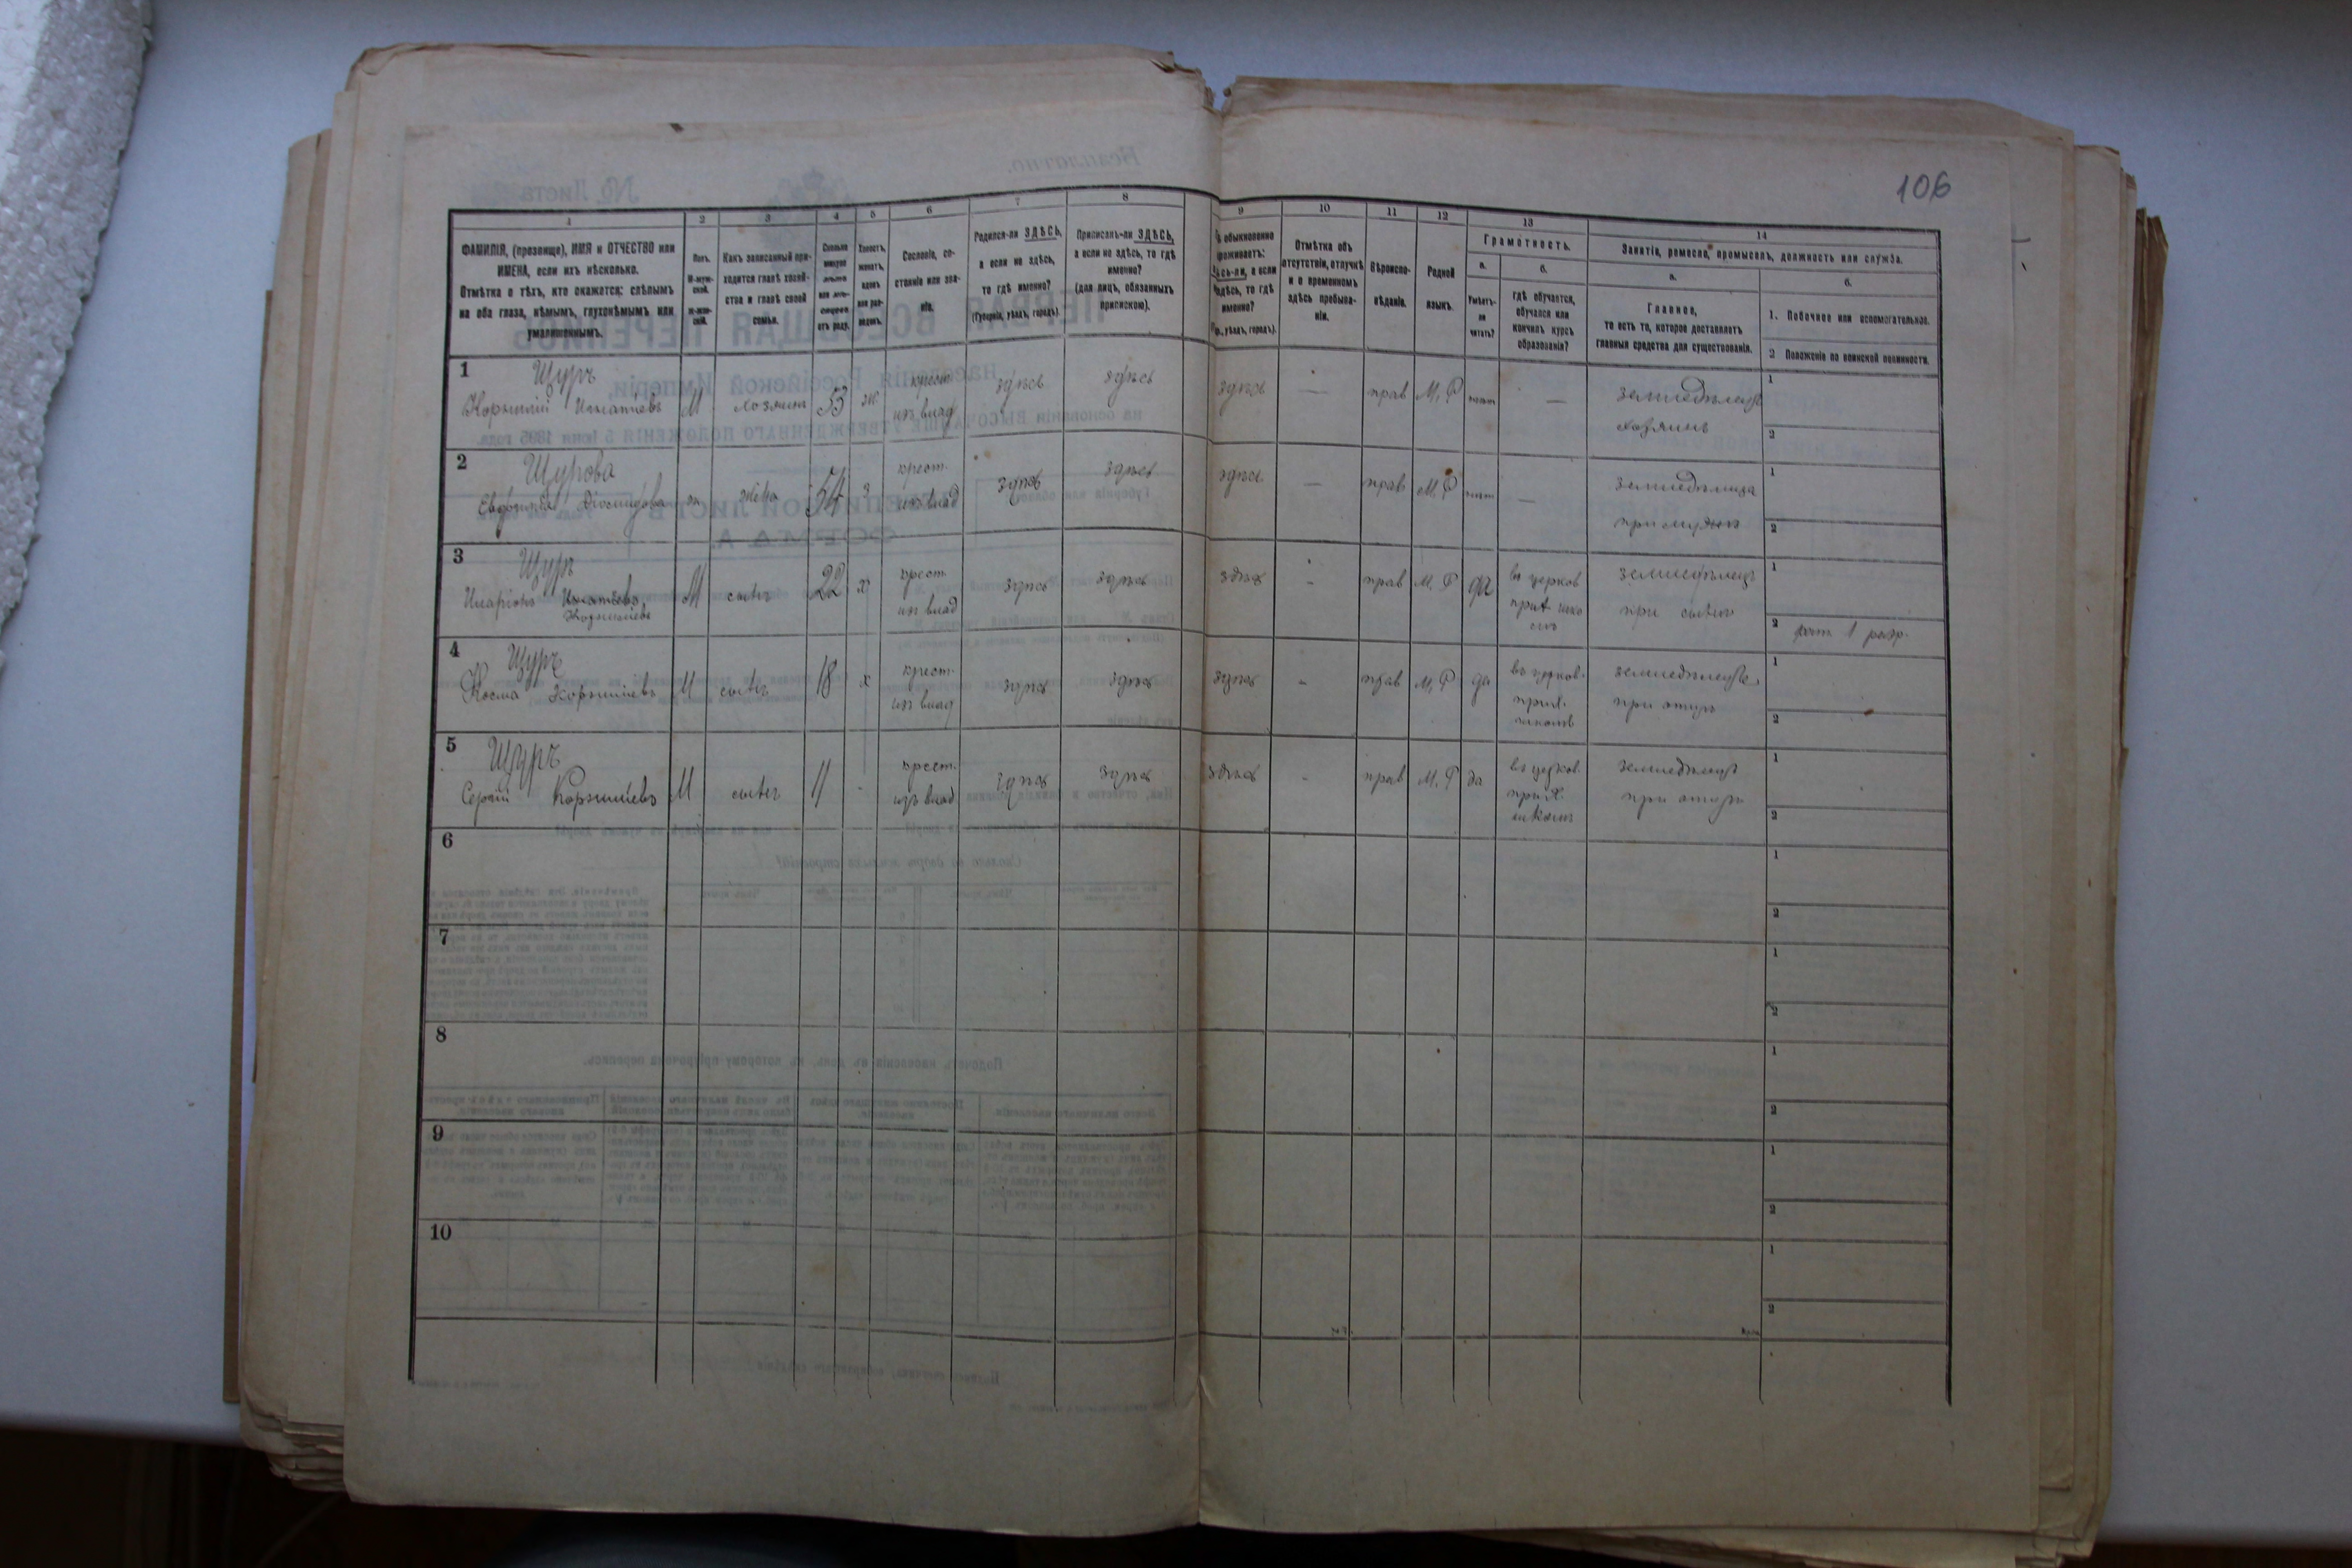 106
1 2 3 4 5 6 7 8 9 10 11 12 13 14
ФАМИЛІЯ, (прозвище), ИМЯ и ОТЧЕСТВО или
ИМЕНА, если ихъ нѣсколько.
Отмѣтка о тѣхъ, кто окажется: слѣпымъ
на оба глаза, нѣмымъ, глухонѣмымъ или
умалишеннымъ.
Полъ.
М-муж-
ской.
Ж-жен-
скій.
Какъ записанный при-
ходится главѣ хозяй-
ства и главѣ своей
семьи.
Сколько
минуло
лѣтъ
или мѣ-
сяцевъ
отъ роду.
Холостъ,
женатъ,
вдовъ
или раз-
веденъ.
Сословіе, со-
стояніе или зва-
ніе.
Родился-ли ЗДѢСЬ,
а если не здѣсь,
то гдѣ именно?
(Губернія, уѣздъ, городъ).
Приписанъ-ли ЗДѢСЬ,
а если не здѣсь, то гдѣ
именно?
(для лицъ, обязанныхъ
припискою).
обыкновенно
проживаетъ:
здѣсь-ли, а если
не здѣсь, то гдѣ
именно?
уѣздъ, городъ).
Отмѣтка объ
отсутствіи, отлучкѣ
и о временномъ
здѣсь пребыва-
ніи.
Вѣроиспо-
вѣданіе.
Родной
языкъ.
Грамотность.
а.
Умѣетъ-
ли
читать?
б.
гдѣ обучается,
обучался или
кончилъ курсъ
образованія?
Занятіе, ремесло, промыселъ, должность или служба.
а.
Главное,
то есть то, которое доставляетъ
главныя средства для существованія.
б.
1. Побочное или вспомогательное.
2 Положеніе по воинской повинности.
1 Щуръ
Корнилій Игнатіевъ М хозяинъ 53 ж. крест. изъ влад здѣсь здѣсь здѣсь — прав М, Р нѣтъ — земледѣлецъ
хозяинъ
1
2
2 Щурова
Евфимія Діомидова ж жена 54 з крест. изъ влад здѣсь здѣсь здѣсь — прав М. Р нѣтъ —
при мужѣ
1
2
3 Щуръ
Иларіонъ Игнатіевъ М сынъ 22 х крест. изъ влад здѣсь здѣсь здѣсь - прав М. Р да въ церков
Корниліевъ прих шко лѣ земледѣлецъ
при
1
2 1 разр.
4 Щуръ
Косма Корниліевъ М сынъ 18 х крест. изъ влад здѣсь здѣсь здѣсь - прав М, Р да въ церков.
прих. школѣ земледѣлецъ
при отцѣ
1
2
5 Щуръ
Сергій Корниліевъ М сынъ 11 - крест. изъ влад здѣсь здѣсь здѣсь - прав М. Р да въ церков.
прих. школѣ земледѣлецъ
при отцѣ
1
2
6
1
2
7
1
2
8
1
2
9
1
2
10
1
2